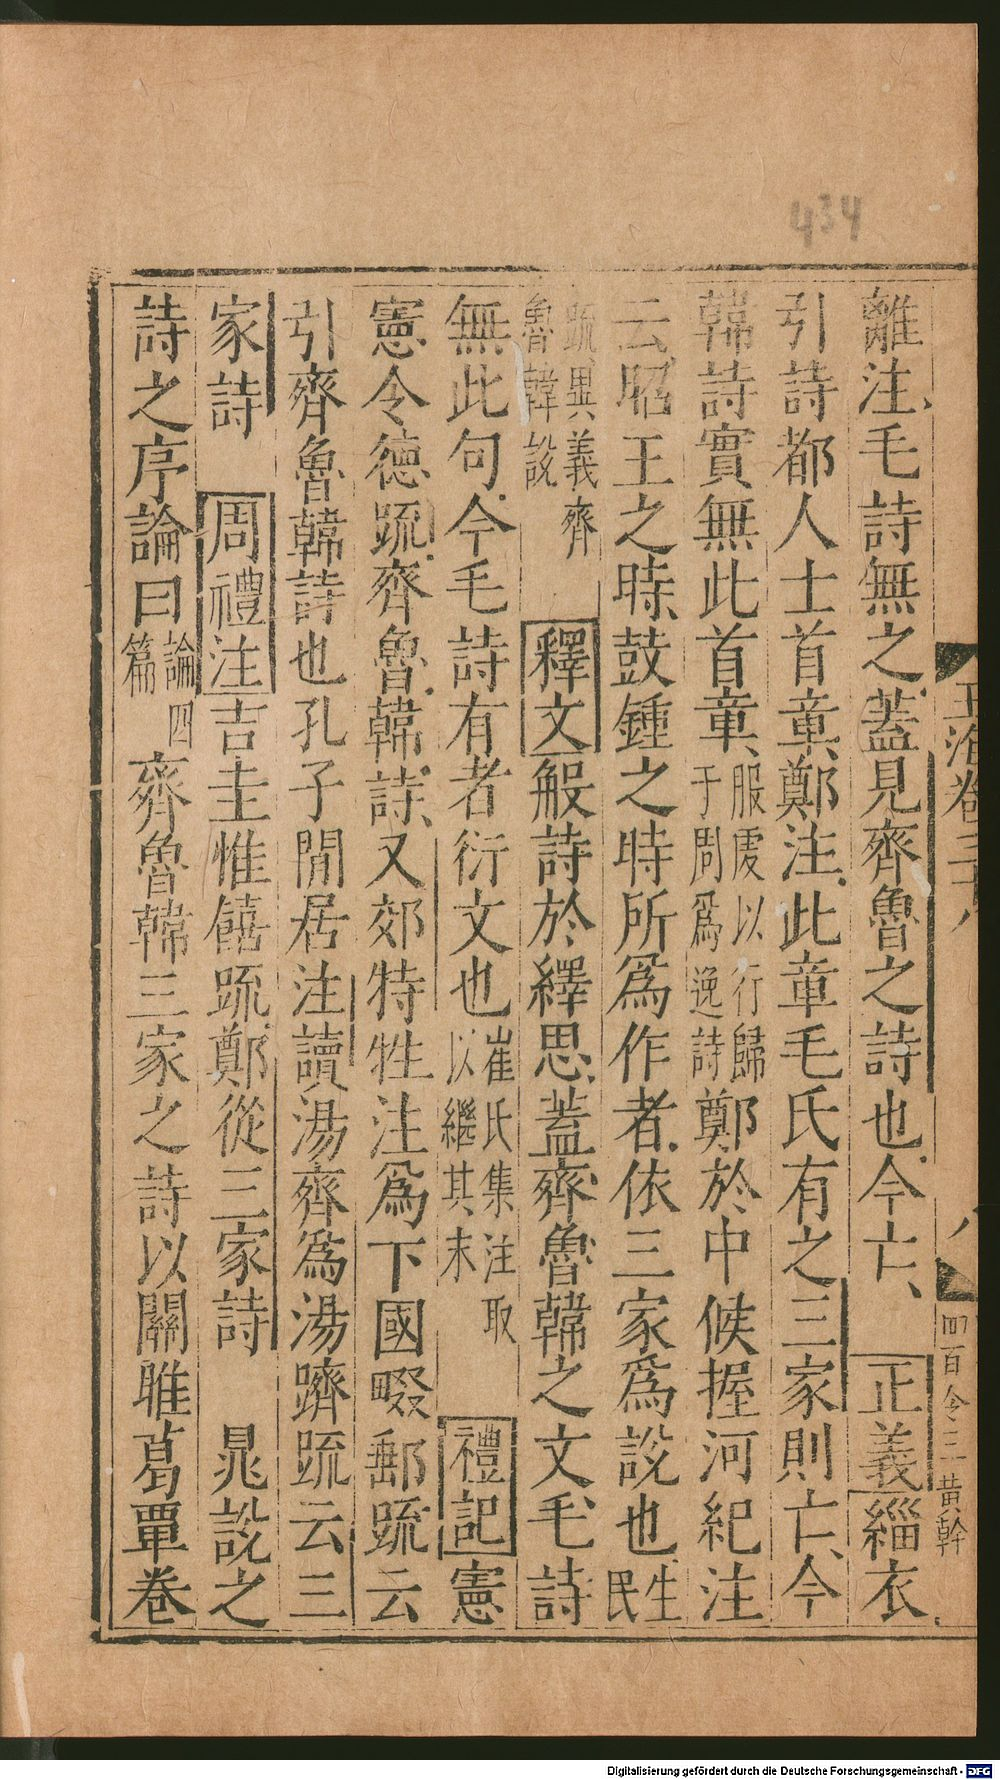 434
玉海卷三十八
八
四百令三 黄幹
離注毛詩無之蓋見齊魯之詩也今亡 正義緇衣
引詩都人士首章鄭注此章毛氏有之三家則亡今
韓詩實無此首章服䖍以行歸于周爲逸詩鄭於中候握河紀注
云昭王之時鼓鍾之時所爲作者依三家爲說也生民
疏異義齊魯韓說 釋文般詩於繹思蓋齊魯韓之文毛詩
無此句今毛詩有者衍文也崔氏集注取以繼其末 禮記憲
憲令德疏齊魯韓詩又郊特牲注爲下國畷郵疏云
引齊魯韓詩也孔子閒居注讀湯齊爲湯躋疏云三
家詩 周禮注吉圭惟饎疏鄭從三家詩 晁說之
詩之序論曰論四篇齊魯韓三家之詩以關雎葛覃卷
Digitalisierung gefördert durch die Deutsche Forschungsgemeinschaft - DFG